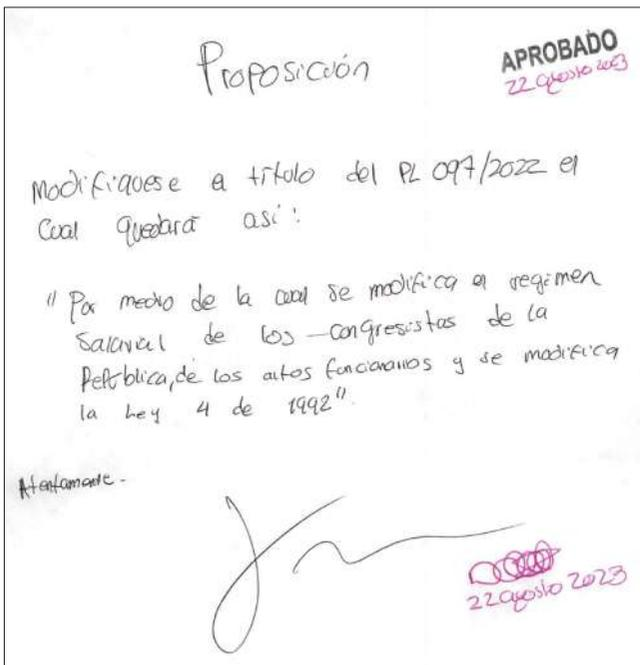 Proposición
APROBADO
22 agosto 2023
Modifiquese e titulo del PL 097/2022 el
Cual quedará así:
"Por medio de la cual se modifica el regimen
Salarial de los congresistas de la
República, de los altos funcionarios y se modifica
la Ley 4 de 1992".
Atentamente.
22 agosto 2023